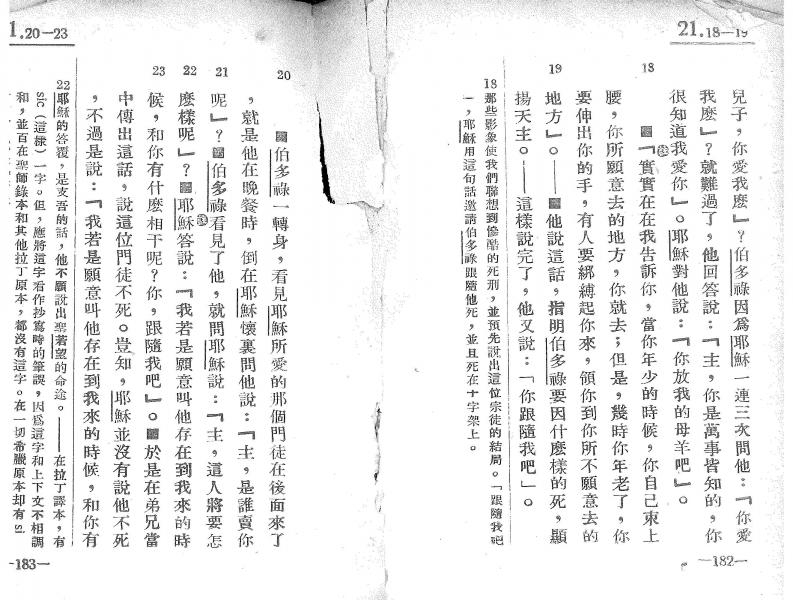 21.18—19
兒子，你愛我麼」？伯多祿因爲耶穌一連三次問他：「你愛
我麼」？就難過了，他回答說：「主，你是萬事皆知的，你
很知道我愛你」。耶穌對他說：「你放我的母羊吧」。
18 「實實在在我告訴你，當你年少的時候，你自己束上
腰，你所願意去的地方，你就去；但是，幾時你年老了，你
要伸出你的手，有人要綁縛起你來，領你到你所不願意去的
19 地方」。——他說這話，指明伯多祿要因什麼樣的死，顯
揚天主。——這樣說完了，他又說：「你跟隨我吧」。
18 那些影象使我們聯想到慘酷的死刑，並預先說出這位宗徒的結局。「跟隨我吧
」，耶穌用這句話邀請伯多祿跟隨他死，並且死在十字架上。
—182—
1.20—23
20 伯多祿一轉身，看見耶穌所愛的那個門徒在後面來了
，就是他在晚餐時，倒在耶穌懷裏問他說：「主，是誰賣你
21 呢」？伯多祿看見了他，就問耶穌說：「主，這人將要怎
22 麼樣呢」？耶穌答說：「我若是願意叫他存在到我來的時
23 候，和你有什麽相干呢？你，跟隨我吧」。於是在弟兄當
中傳出這話，說這位門徒不死。豈知，耶穌並沒有說他不死
，不過是說：「我若是願意叫他存在到我來的時候，和你有
22 耶穌的答覆，是支吾的話，他不願說出聖若望的命途。——在拉丁譯本，有
sic（這樣）一字。但，應將這字看作抄寫時的筆誤，因爲這字和上下文不相調
和，並百在聖師錄本和其他拉丁原本，都沒有這字。在一切希臘原本却有si
-183—